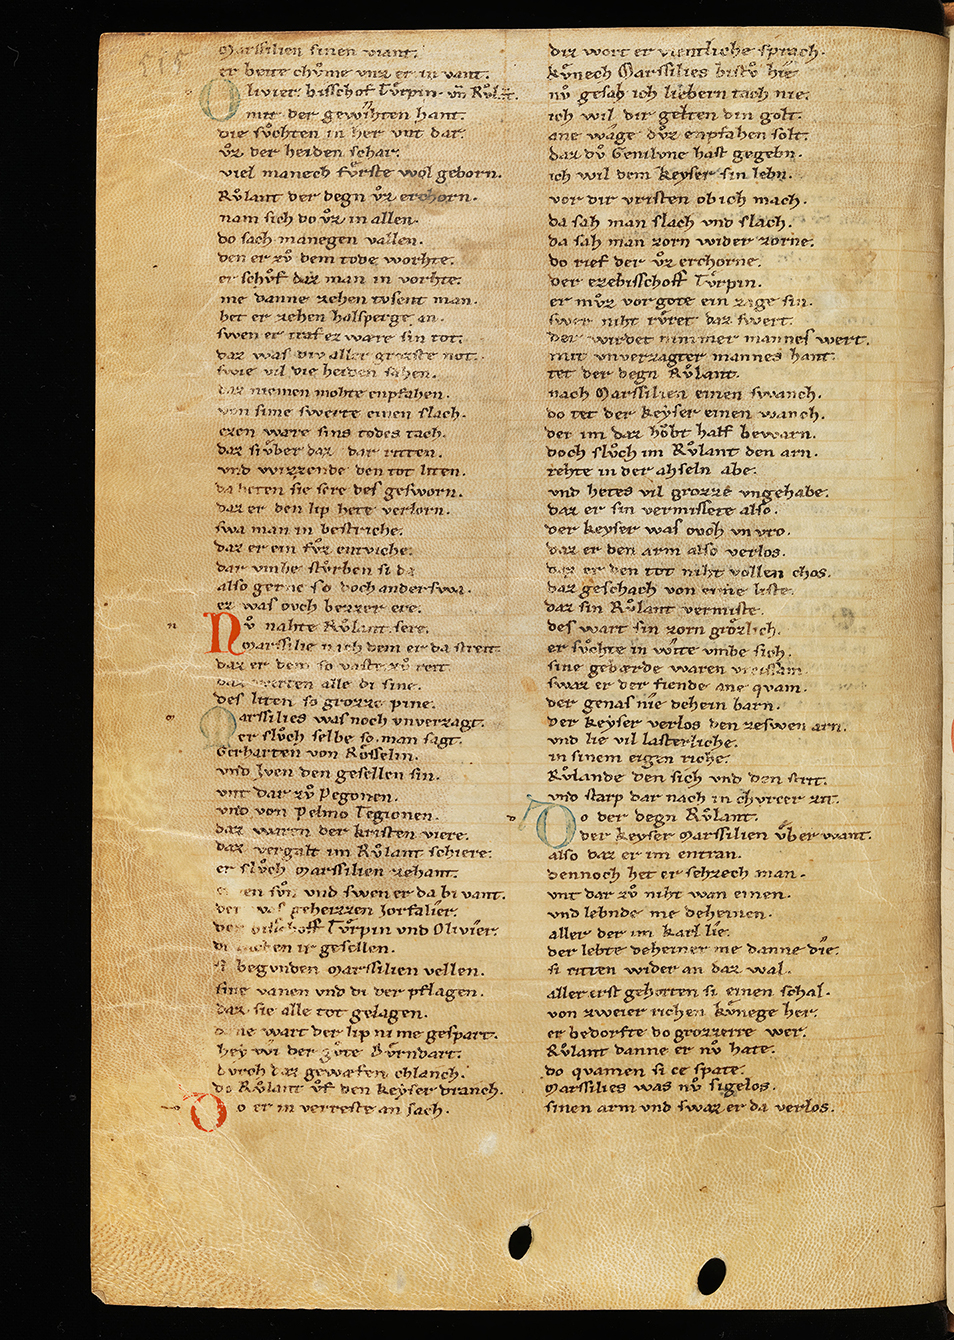 515
Marssilien sinen viant.
er beite chůme vnz er in vant.
Olivier. bisschof Tůrpin. vn̄ Růlāt.
mit der gewihten hant.
die sůchten in her vnt dar.
vͦz der heiden schar.
viel manech fůrste wol geborn.
Růlant der degn vͦz erchorn.
nam sich do vͦz in allen.
do sach manegen vallen.
den er zů dem tode worhte.
er schůf daz man in vorhte.
me danne zehen tvsent man.
het er zehen halsperge an.
swen er traf ez ware sin tot.
daz was div aller grozste not.
swie vil die heiden sahen.
daz niemen mohte enpfahen.
von sime swerte einen slach.
ezen ware sins todes tach.
daz si vͦber daz dar ritten.
vnd wizzende den tot liten.
da heten sie sere des gesworn.
daz er den lip hete verlorn.
swa man in bestriche.
daz er ein fůz entviche.
dar vmbe stůrben si da
also gerne so doch anderswa.
ez was ovch bezzer ere.
Nů nahte Růlant sere.
Marssilie nach dem er da streit.
daz er dem so vaste zů reit.
daz alle di sine.
des liten so grozze pine.
Marssilies was noch vnverzagt.
er slůch selbe so man sagt.
Gerharten von Rosselin.
vnd Iven den gesellen sin.
vnt dar zů Pegonen.
vnd von Pelmo Tegionen.
daz waren der kristen viere.
daz vergalt im Růlant schiere.
er slůch Marssilien zehant.
en sůn vnd swen er da bi vant.
der was geheizzen Jorfalier.
der bisschoff Tůrpin vnd Olivier.
di ir gesellen.
si begvnden Marssilien vellen.
sine vanen vnd di der pflagen.
daz sie alle tot gelagen.
da ne wart der lip nime gespart.
hey wi der gůte Důrndart.
durch daz gewæfen chlanch.
do Růlant vͦf den keyser dranch.
Do er in verreste an sach.
diz wort er vientliche sprach.
kůnech Marssilies bistů hie
nů gesah ich liebern tach nie.
ich wil dir gelten din golt.
ane wage důz enpfahen solt.
daz dů Genilvne hast gegebn.
ich wil dem keyser sin lebn.
vor dir vristen ob ich mach.
da sah man slach vnd slach.
da sah man zorn wider zorne.
do rief der vͦz erchorne.
der erzebisschoff Tůrpin.
er můz vor gote ein zage sin.
swer niht růret daz swert.
der wirdet nimmer mannes wert.
mit vnverzagter mannes hant.
tet der degn Růlant.
nach Marssilien einen swanch.
do tet der keyser einen wanch.
der im daz hobt half bewarn.
doch slůch im Růlant den arn.
rehte in der ahseln abe.
vnd hetes vil grozze vngehabe.
daz er sin vermissete also.
der keyser was ovch vnvro.
daz er den arm also verlos.
daz er den tot niht vollen chos.
daz geschach von eine liste.
daz sin Růlant vermiste.
des wart sin zorn grozlich.
er sůchte in wite vmbe sich.
sine gebærde waren vreissam.
swaz er der fiende ane quam.
der genas nie dehein barn.
der keyser verlos den zeswen arn.
vnd lie vil lasterliche.
in sinem eigen riche.
Růlande den sich vnd den strit.
vnd starp dar nach in chvrcer zit.
Do der degn Růlant.
der keyser Marssilien vͦber want.
also daz er im entran.
dennoch het er sehzech man.
vnt dar zů niht wan einen.
vnd lebnde me deheinen.
aller der im karl lie.
der lebte deheiner me danne die.
si ritten wider an daz wal.
aller erst gehorten si einen schal.
von zweier richen kůnege her.
er bedorfte do grozzerre wer.
Růlant danne er nů hate.
do quamen si ce spate.
Marssilies was nů sigelos.
sinen arm vnd swaz er da verlos.